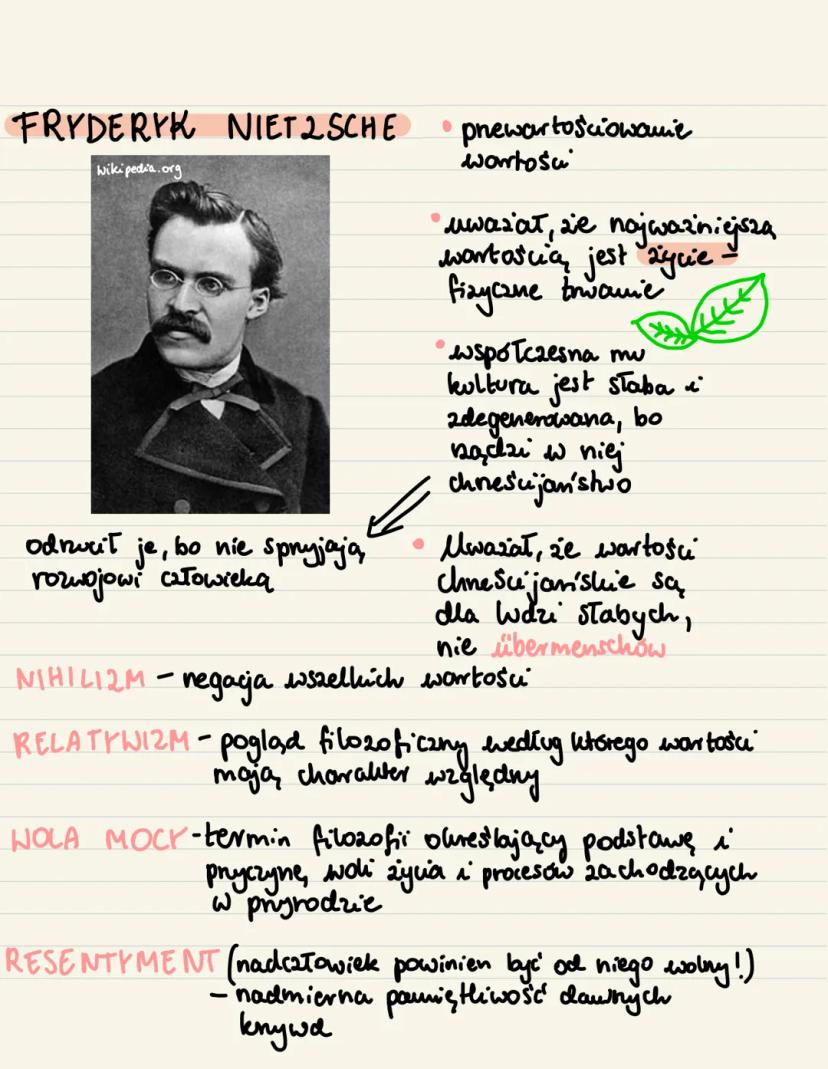 FRYDERYK NIETZSCHE
wikipedia.org
• przewartościowanie
wartości
• uważał, że najważniejszą
wartością jest życie –
fizyczne trwanie
• współczesna mu
kultura jest słaba i
zdegenerowana, bo
rządzi w niej
chrześcijaństwo
odrzucił je, bo nie sprzyjają
rozwojowi człowieka
• Uważał, że wartości
chrześcijańskie są
dla ludzi słabych,
nie übermenschów
NIHILIZM – negacja wszelkich wartości
RELATYWIZM – pogląd filozoficzny według którego wartości
mają charakter względny
WOLA MOCY - termin filozofii określający podstawę i
przyczynę woli życia i procesów zachodzących
w przyrodzie
RESENTYMENT (nadczłowiek powinien być od niego wolny!)
– nadmierna pamiętliwość dawnych
krzywd